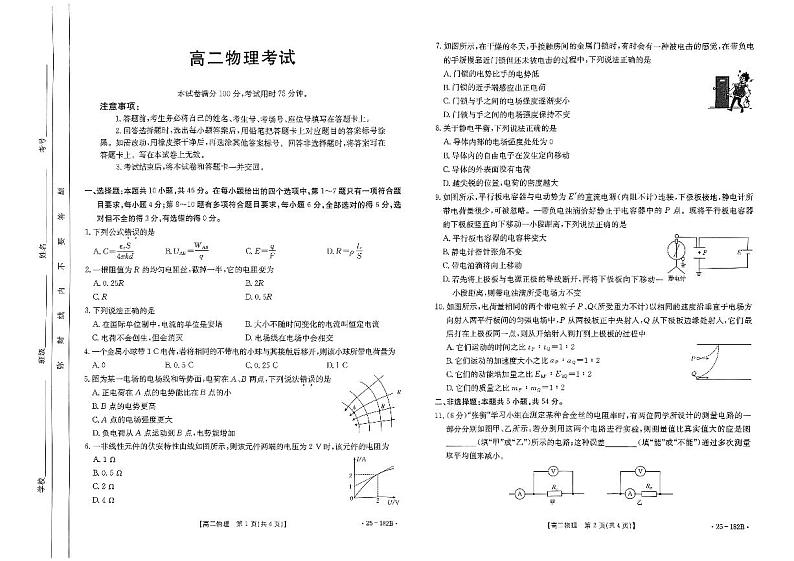 高二物理考试
本试卷满分100分,考试用时75分钟。
注意事项:
1.答题前,考生务必将自己的姓名、考生号、考场号、座位号填写在答题卡上。
2.回答选择题时,选出每小题答案后,用铅笔把答题卡上对应题目的答案标号涂
黑。如需改动,用橡皮擦干净后,再选涂其他答案标号。回答非选择题时,将答案写在
答题卡上。写在本试卷上无效。
3.考试结束后,将本试卷和答题卡一并交回。
一、选择题:本题共10小题,共46分。在每小题给出的四个选项中,第1~7题只有一项符合题
目要求,每小题4分;第8~10题有多项符合题目要求,每小题6分,全部选对的得6分,选
对但不全的得3分,有选错的得0分。
1.下列公式错误的是
A.C=εrS/4πkd B.UAB=WAB/q C.E=q/F D.R=ρl/S
2.一根阻值为R的均匀电阻丝,截掉一半,它的电阻变为
A.0.25R B.2R
C.R D.0.5R
3.下列说法正确的是
A.在国际单位制中,电流的单位是安培 B.大小不随时间变化的电流叫恒定电流
C.电荷不会创生,但会消灭 D.电场线在电场中会相交
4.一个金属小球带1C电荷,若将相同的不带电的小球与其接触后移开,则该小球所带电荷量为
A.0 B.0.5 C C.0.25 C D.1 C
5.图为某一电场的电场线和等势面,电荷在A、B两点,下列说法错误的是
A.正电荷在A点的电势能比在B点的小
B.B点的电势更高
C.A点的电场强度更大
D.负电荷从A点运动到B点,电势能增加
6.一非线性元件的伏安特性曲线如图所示,则该元件两端的电压为2 V时,该元件的电阻为
A.1 Ω
B.0.5 Ω
C.2 Ω
D.4 Ω
I/A
2
1
0
2
4
U/V
【高二物理 第1页(共4页)】
·25-182B·
7.如图所示,在干燥的冬天,手接触房间的金属门锁时,有时会有一种被电击的感觉,在带负电
的手缓慢靠近门锁但还未被电击的过程中,下列说法正确的是
A.门锁的电势比手的电势低
B.门锁的近手端感应出正电荷
C.门锁与手之间的电场强度逐渐变小
D.门锁与手之间的电场强度保持不变
8.关于静电平衡,下列说法正确的是
A.导体内部的电场强度处处为0
B.导体内的自由电子在发生定向移动
C.导体的外表面没有电荷
D.越尖锐的位置,电荷的密度越大
9.如图所示,平行板电容器与电动势为E'的直流电源(内阻不计)连接,下极板接地,静电计所
带电荷量很少,可被忽略。一带负电油滴恰好静止于电容器中的P点。现将平行板电容器
的下极板竖直向下移动一小段距离,下列说法正确的是
A.平行板电容器的电容将变大
B.静电计指针张角不变
C.带电油滴将向上移动
D.若先将上极板与电源正极的导线断开,再将下极板向下移动一
小段距离,则带电油滴所受电场力不变
静电计
P
10.如图所示,电荷量相同的两个带电粒子P、Q(所受重力不计)以相同的速度沿垂直于电场方
向射入两平行板间的匀强电场中,P从两极板正中央射入,Q从下极板边缘处射入,它们最
后打在上极板两一点,则从开始射入到打到上极板的过程中
A.它们运动的时间之比tP∶tQ=1∶2
B.它们运动的加速度大小之比aP∶aQ=1∶2
C.它们的动能增加量之比EkP∶EkQ=1∶2
D.它们的质量之比mP∶mQ=1∶2
P
Q
二、非选择题:本题共5小题,共54分。
11.(6分)“张衡”学习小组在测定某种合金丝的电阻率时,有两位同学所设计的测量电路的一
部分分别如图甲、乙所示,若分别用这两个电路进行实验,则测量值比真实值大的应是图
______(填“甲”或“乙”)所示的电路;这种误差______(填“能”或“不能”)通过多次测量
取平均值来减小。
V
A
Rx
甲
V
A
Rx
乙
【高二物理 第2页(共4页)】
·25-182B·
学校
班级
姓名
考号
密 封 线 内 不 要 答 题